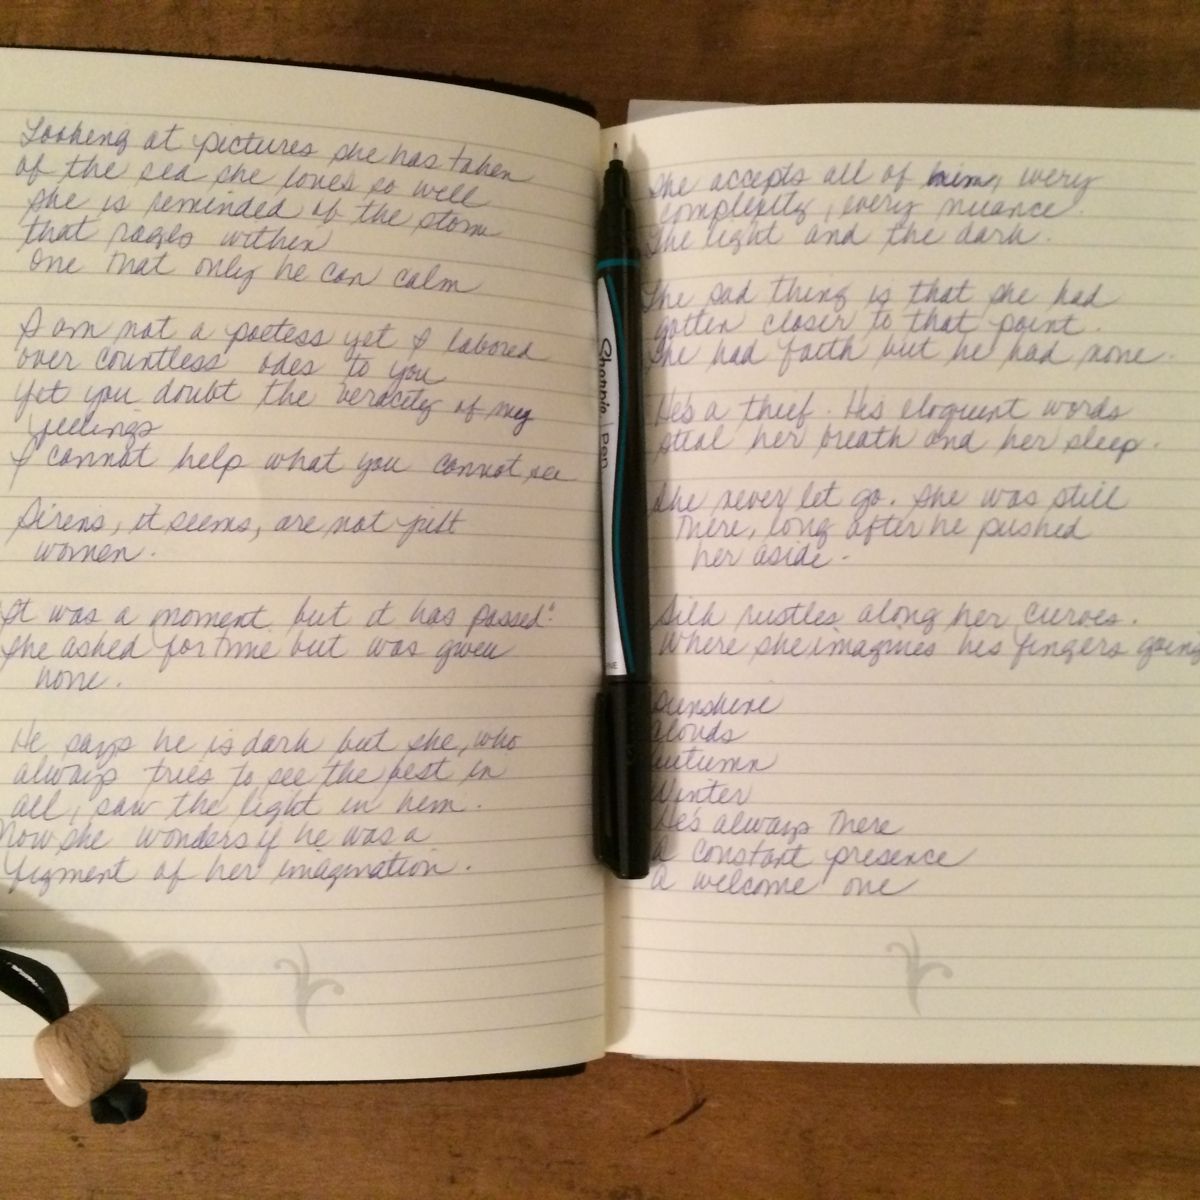 Looking at pictures she has taken
of the sea she loves so well
she is reminded of the storm
that rages within
one that only he can calm
I am not a poetess yet I labored
over countless odes to you
yet you doubt the veracity of my
feelings
I cannot help what you cannot see
Sirens, it seems, are not just
women.
It was a moment but it has passed.
She asked for time but was given
none.
He says he is dark but she, who
always tries to see the best in
all, saw the light in him.
Now she wonders if he was a
figment of her imagination.
Sharpie | Pen
FINE
She accepts all of him, every
complexity, every nuance
The light and the dark.
The sad thing is that she had
gotten closer to that point.
She had faith but he had none.
He's a thief. His eloquent words
steal her breath and her sleep.
She never let go. She was still
there, long after he pushed
her aside.
Silk rustles along her curves.
Where she imagines his fingers going
Sunshine
Clouds
Autumn
Winter
He's always there
a constant presence
a welcome one